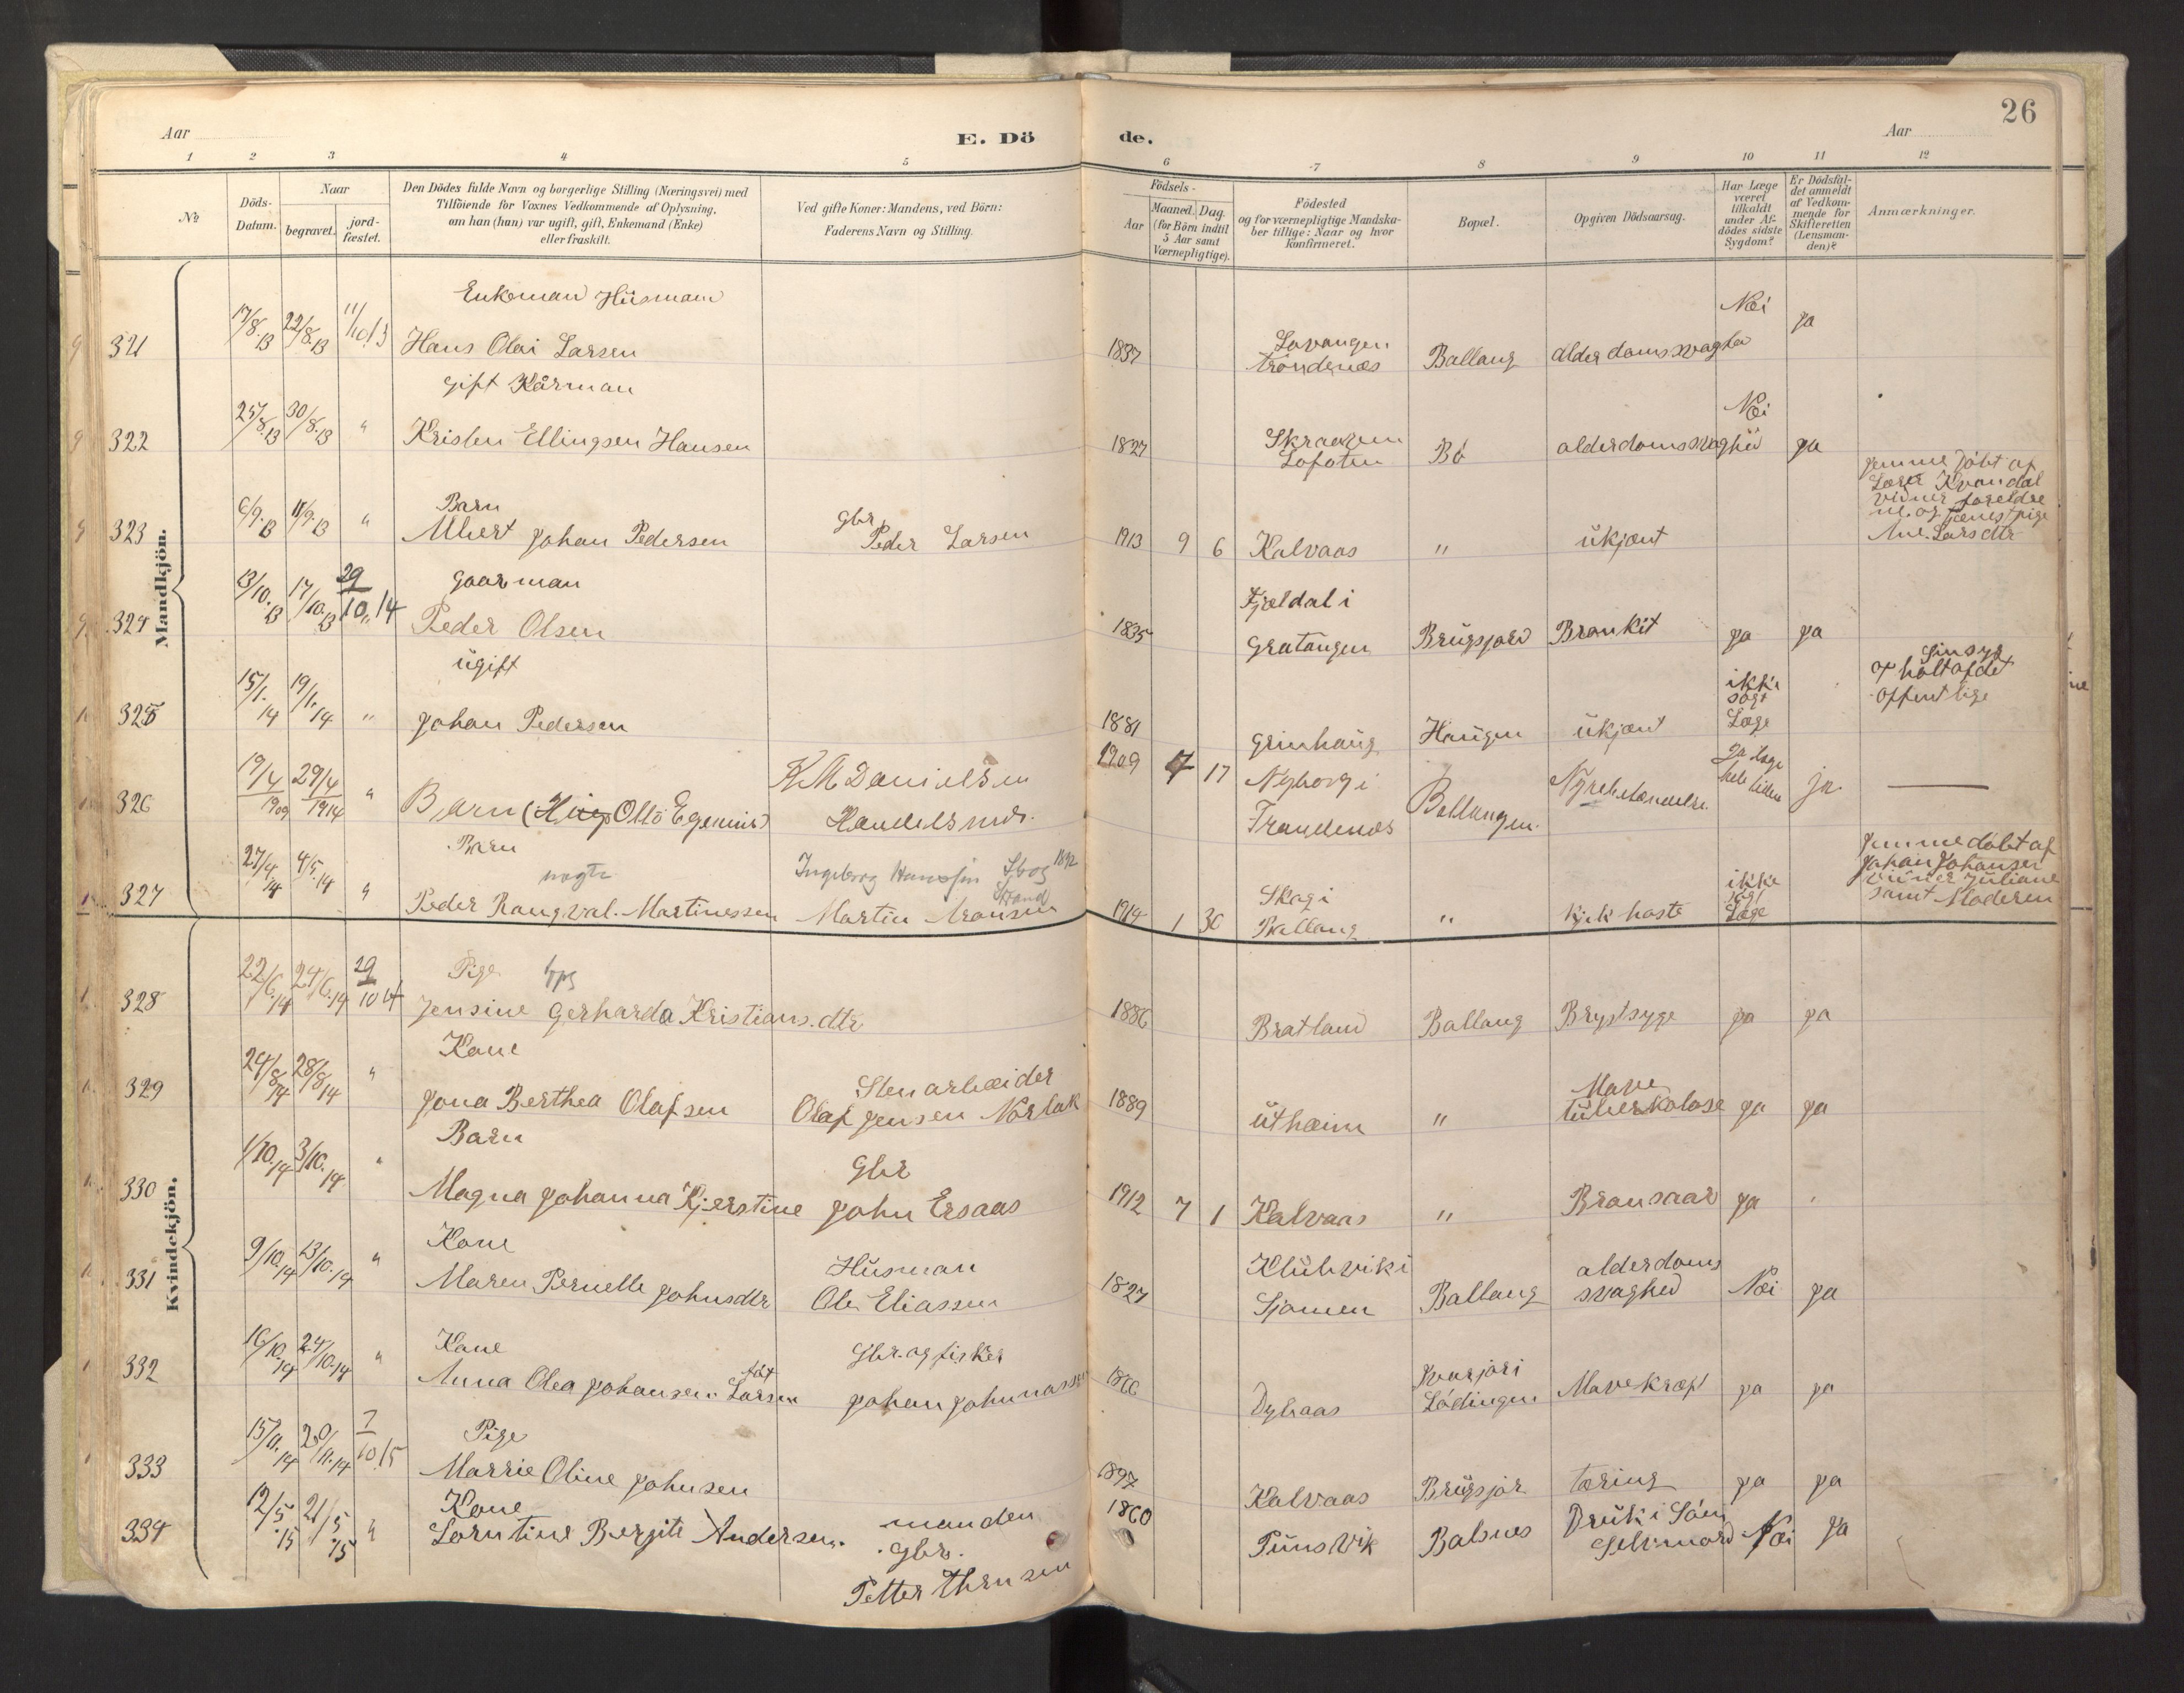 26
Aar
E. Dö
de.
Aar
1 2 3 4 5 6 7 8 9 10 11 12
No
Döds-Datum.
Naar
begravet.
jord-fæstet.
Den Dödes fulde Navn og borgerlige Stilling (Næringsvei) med
Tilföiende for Voxnes Vedkommende af Oplysning,
om han (hun) var ugift, gift, Enkemand (Enke)
eller fraskilt.
Ved gifte Koner: Mandens, ved Börn:
Faderens Navn og Stilling.
Födsels-
Aar
Maaned. Dag.
(for Börn indtil
5 Aar samt
Værnepligtige).
Födested
og for værnepligtige Mandska-
ber tillige: Naar og hvor
konfirmeret.
Bopæl.
Opgiven Dödsaarsag.
Har Læge
været
tilkaldt
under Af-
dödes sidste
Sygdom?
Er Dödsfal-
det anmeldt
af Vedkom-
mende for
Skifteretten
(Lensman-
den)?
Anmærkninger.
Mandkjön.
Enkeman Husmand Nei
321 17/8.13 22/8.13 11/10 13 Hans Olai Larsen 1837 Lavangen Trondenæs Ballang alderdomssvaghed ja
gift Kårman Nei
322 25/8.13 30/8.13 " Kristen Ellingsen Hansen 1827 Skraaven Lofoten Bö alderdomssvaghed ja
Barn Gbr
323 6/9.13 11/9.13 " Albert Johan Pedersen Peder Larsen 1913 9 6 Kalvaas " ukjent
hjemme döbt af
Lærer Kvandal
vidner foreldre
ne. og tjenestpige
Ane. Larsdtr
Gaarman
324 13/10.13 17/10.13 29/10.14 Peder Olsen 1835 Fjeldal i Gratangen Brugsjord Bronkit ja ja
ugift
325 15/1.14 19/1.14 " Johan Pedersen 1881 Grinhaug Haugen ukjent ikke sögt Læge
Sinsyg
opholt af det
offentlige
326 19/4 1909 29/4 1914 " Barn ( Otto Egenius) K M Danielsen Handelsmd. 1909 4 17 Nyborg i Trondenæs Ballangen. Nyrebetændelse. Ja Læge hele tiden ja.
Barn nøgte Ingeborg Hansgin Skog 1892
Strand
327 27/4.14 4/5.14 " Peder Rangval. Martinessen Martin Aronsen 1914 1 30 Skag i Ballang " Kjikhoste ikke sögt Læge
hjemmedöbt af
Johan Johansen
vidner Juliane
samt Moderen
Kvindekjön.
Pige
328 22/6.14 24/6.14 29/10 14 Jensine Gerharda Kristians.dtr 1886 Bratland Ballang Brystsyge ja ja
Kone Stenarbeider
329 24/8.14 28/8.14 " Jona Berthea Olafsen Olaf Jensen Norbak 1889 Utheim " Mave tuberkolose ja ja
Barn Gbr
330 1/10.14 3/10.14 " Magna Johanna Kjerstine John Ersaas 1912 7 1 Kalvaas " Bransaar ja
Kone Husman
331 9/10.14 13/10.14 " Maren Pernelle Johnsdtr Ole Eliassen 1827 Klubvik i Sjomen Ballang alderdoms svaghed Nei ja
Kone Gbr. og fisker
332 16/10.14 24/10.14 " Anna Olea Johansen född Larsen Johan Johnnassen 1866 Dybaas Lödingen Mavekræft ja ja
Pige
333 15/11.14 20/11.14 7/10 15 Marrie Oline Johnsen 1897 Kalvaas Brugsjor tæring ja ja
Kone manden
334 12/5.15 21/5.15 " Lorntine Bergite Andersen. Gbr. 1860 Punsvik Balsnes Druk i Söen Selvmord Nei ja
Petter Thrnsen